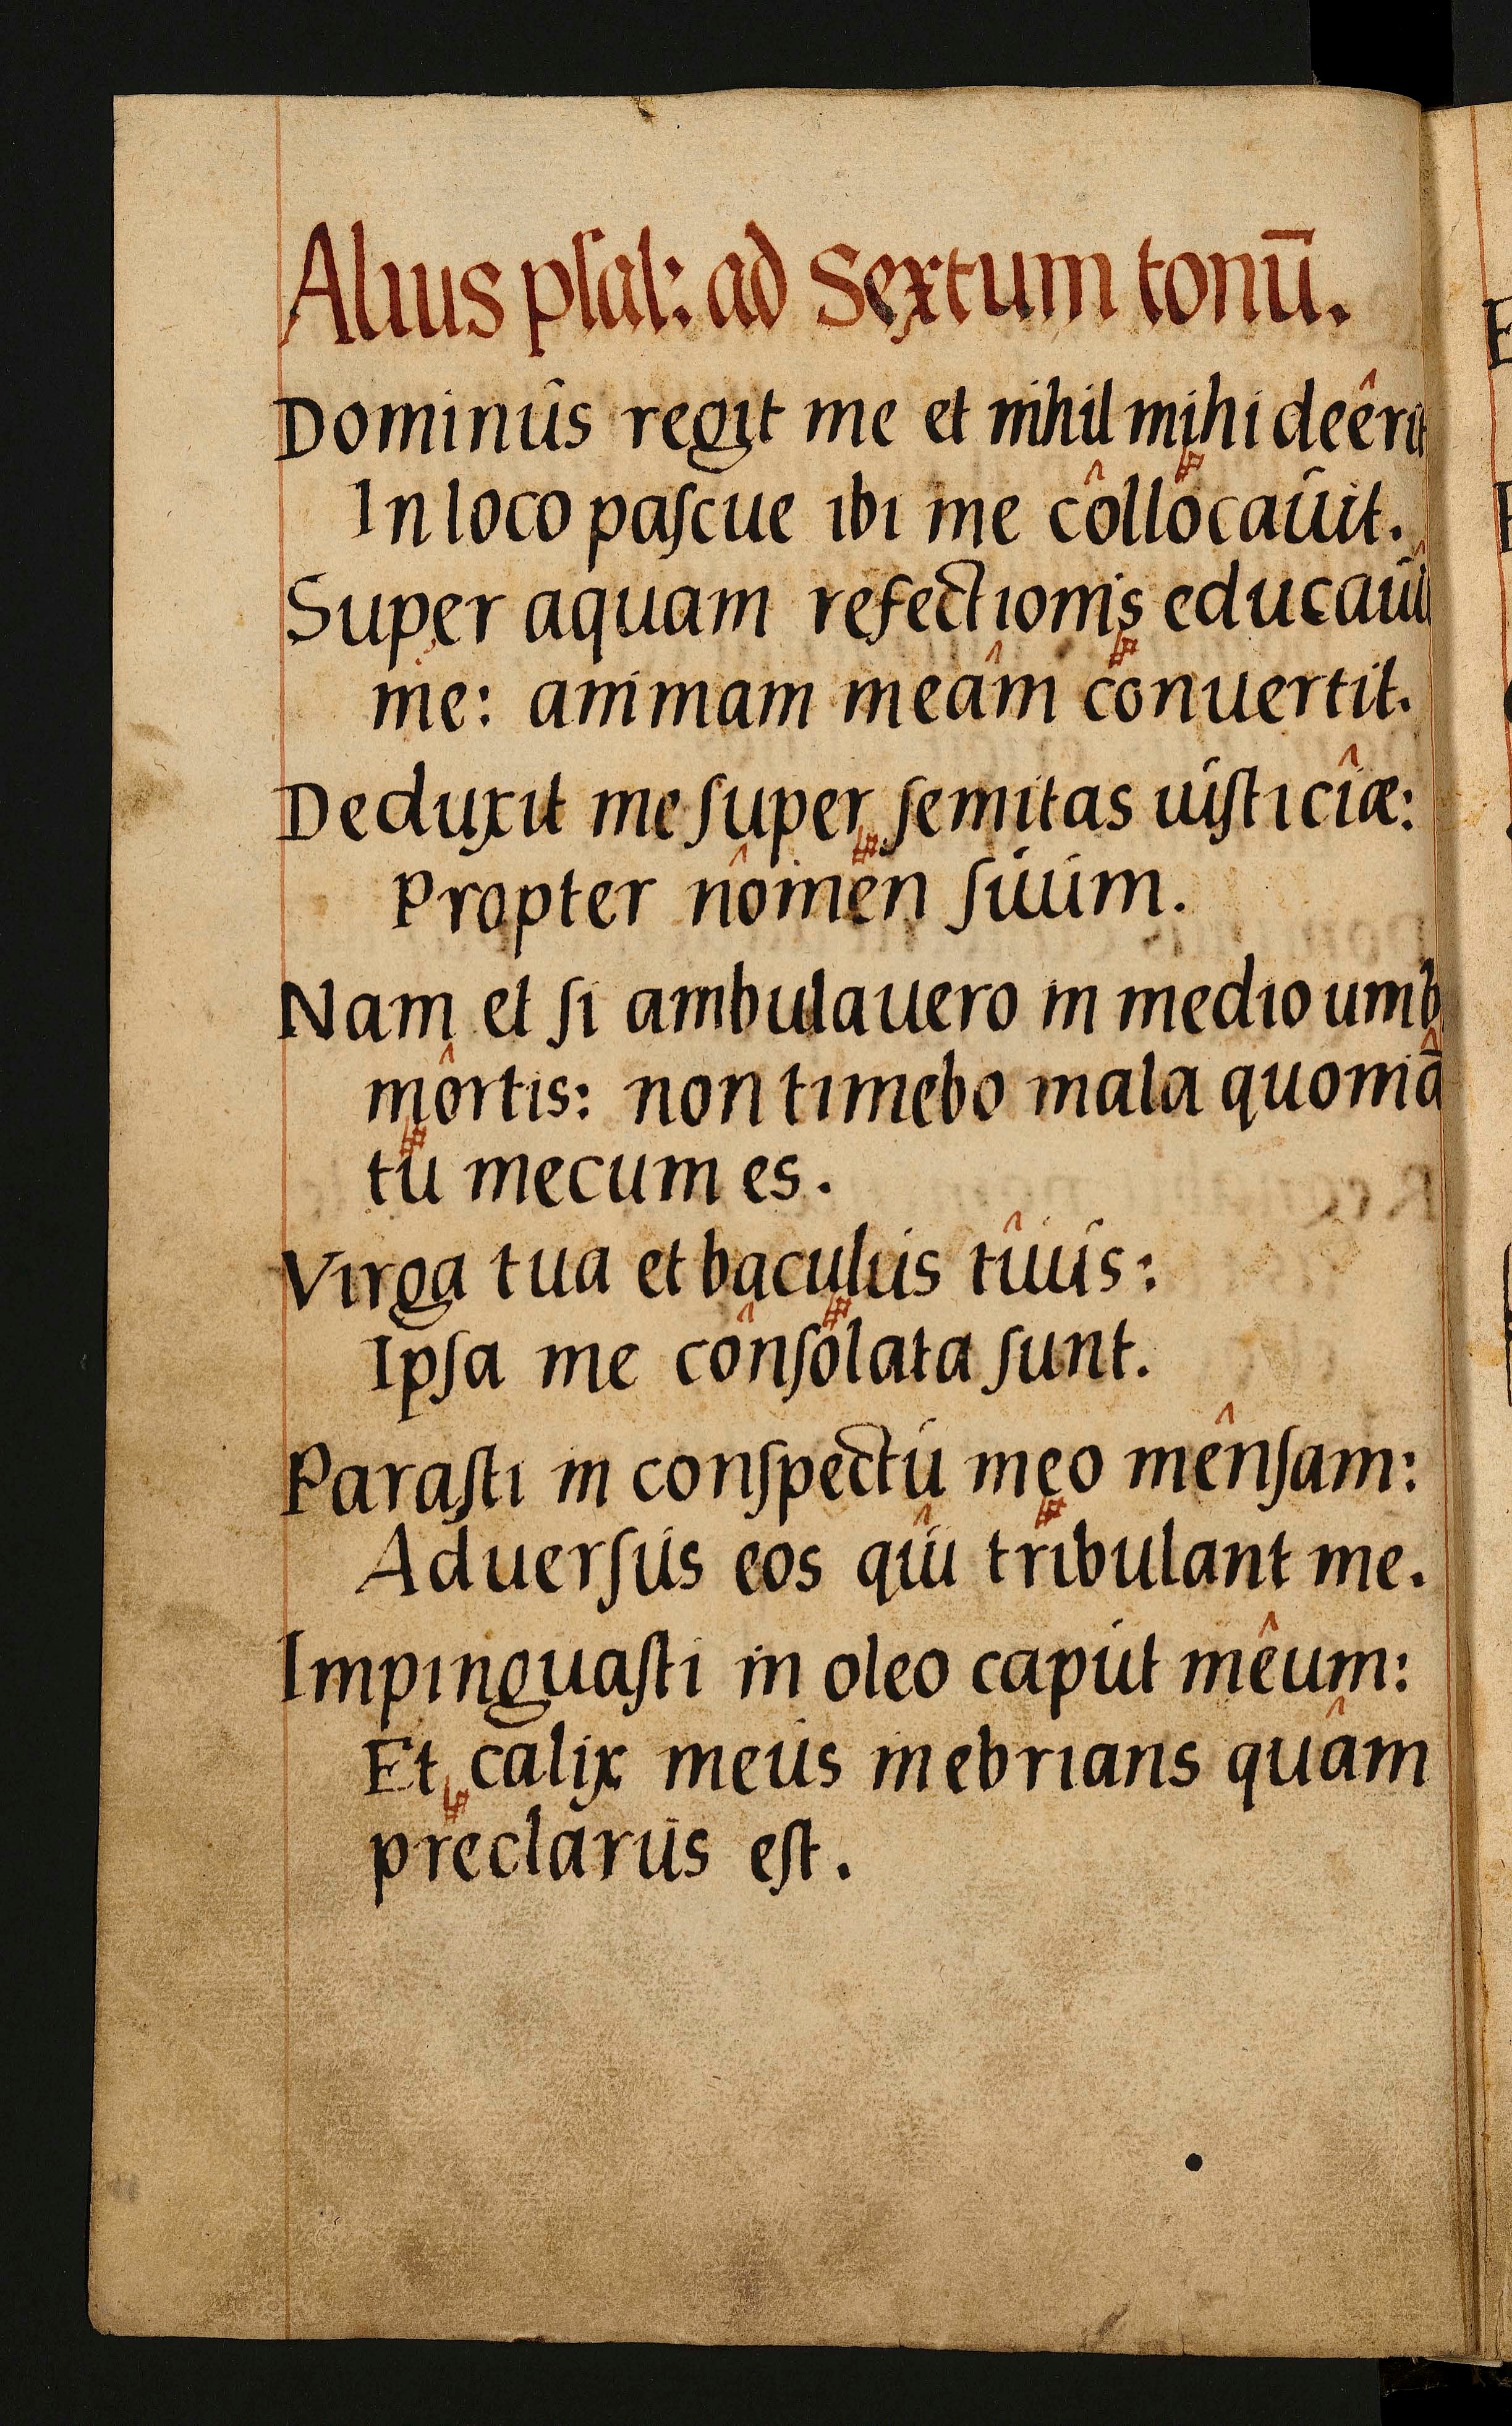 Alius psal: ad Sextum tonū.
Dominus regit me et nihil mihi deêrit
In loco pascue ibi me côllocauit.
Super aquam refectionis educauî
me: animam meâm conuertit.
Deduxit me super semitas iusticîæ:
Propter nômen suum.
Nam et si ambulauero in medio umb
môrtis: non timebo mala quoniā
tu mecum es.
Virga tua et baculus tûus:
Ipsa me cônsolata sunt.
Parasti in conspectu meo mênsam:
Aduersus eos qûi tribulant me.
Impinguasti in oleo caput mêum:
Et calix meus inebrians quâm
preclarus est.